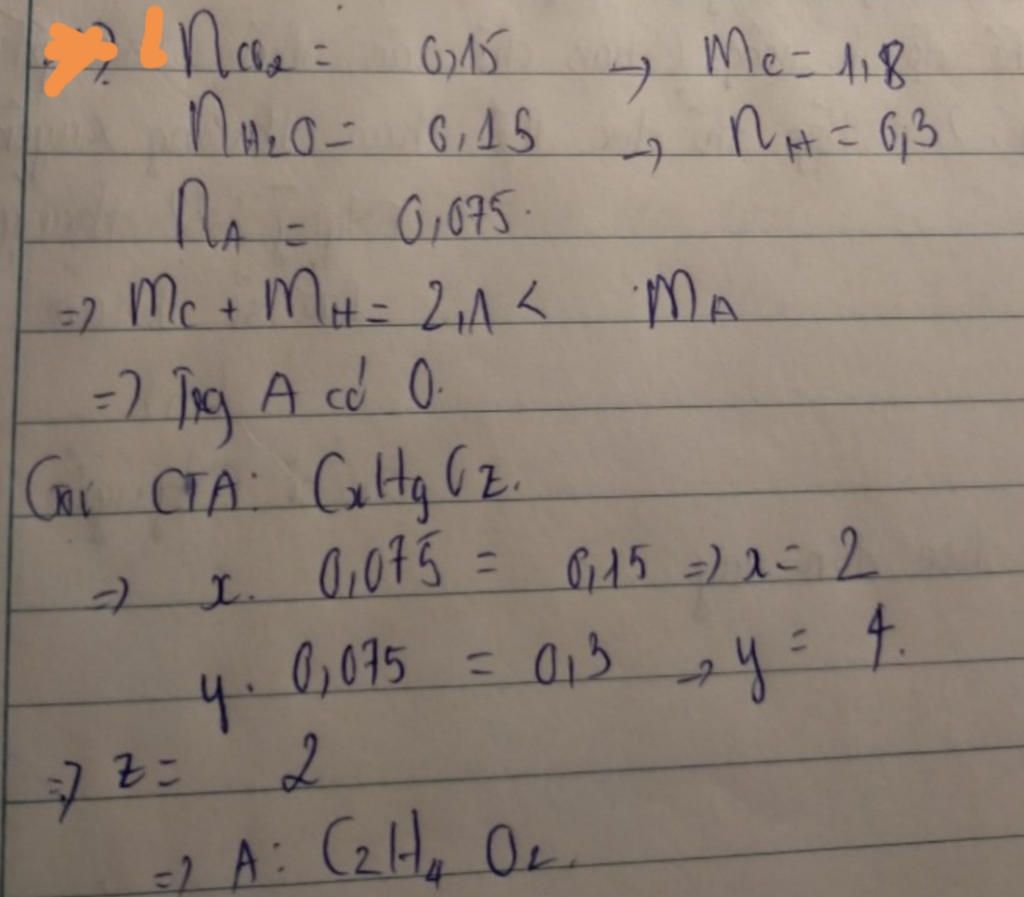 => n CO2 = 0,15 → mC = 1,8
nH2O = 0,15 → nH = 0,3
nA = 0,075.
=> mC + mH = 2,1 < mA
=> Trg A có O.
Gọi CTA: CxHyOz.
=> x. 0,075 = 0,15 => x = 2
y. 0,075 = 0,3 → y = 4.
=> z = 2
=> A: C2H4O2.